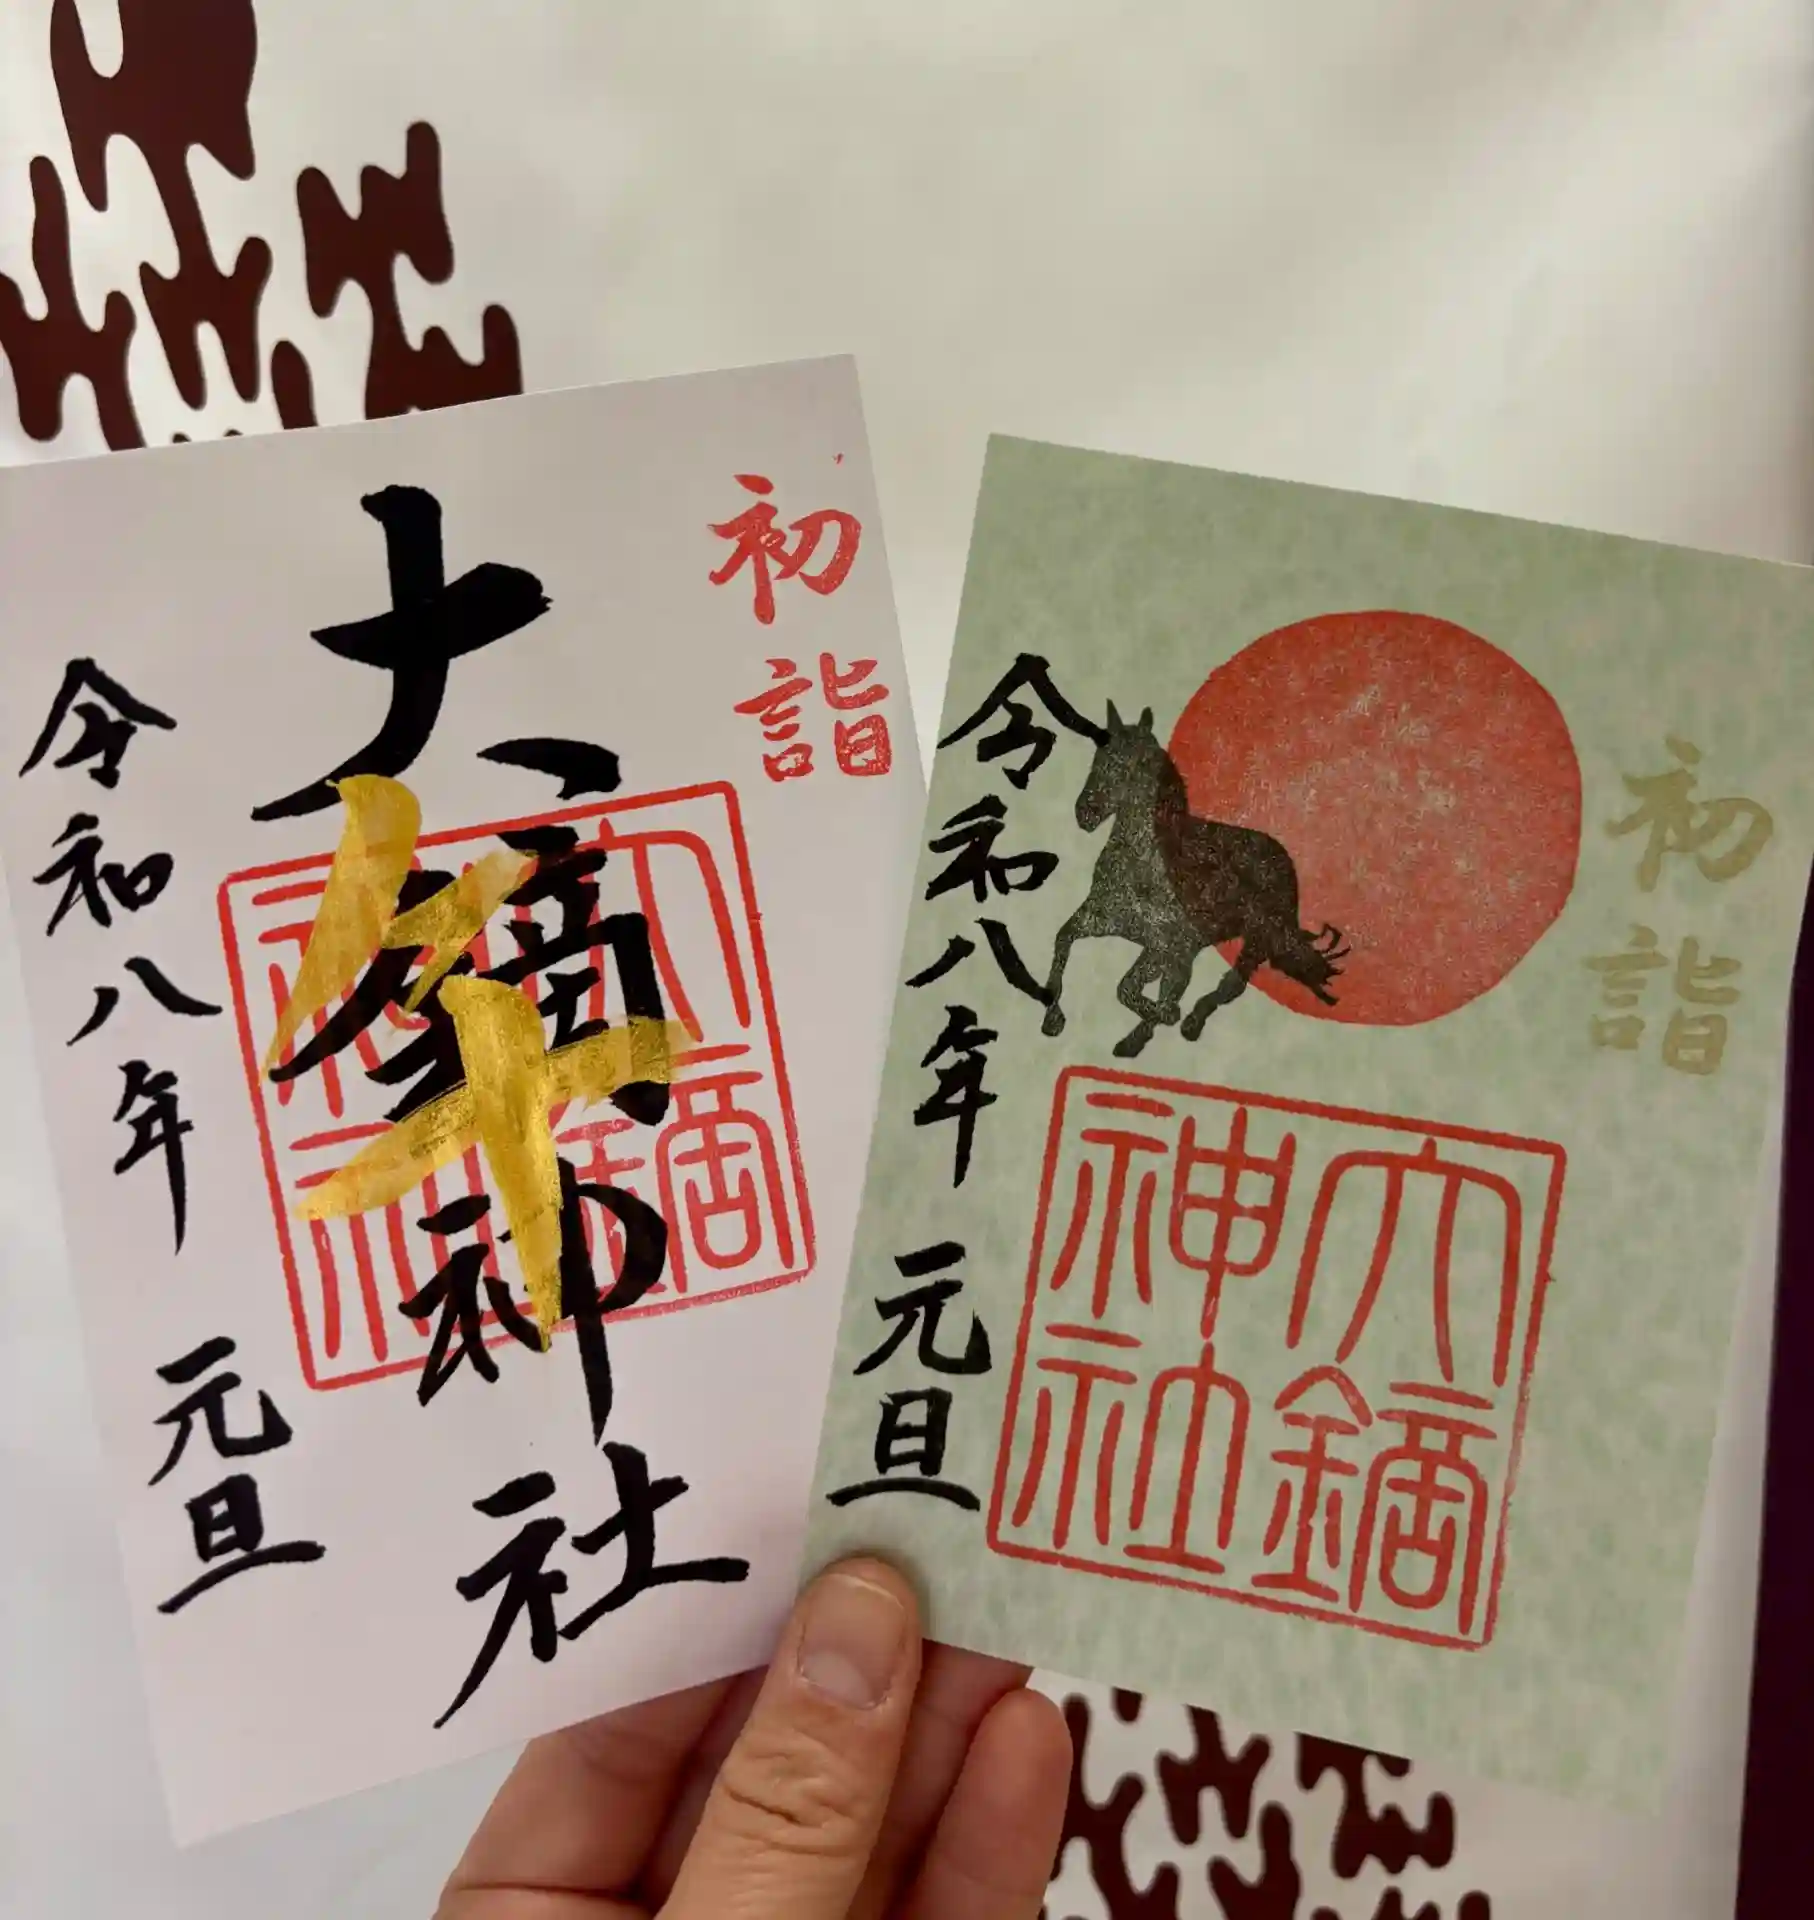 初詣
大鏑神社
午
大鏑神社
令和八年 元旦
初詣
大鏑神社
令和八年 元旦